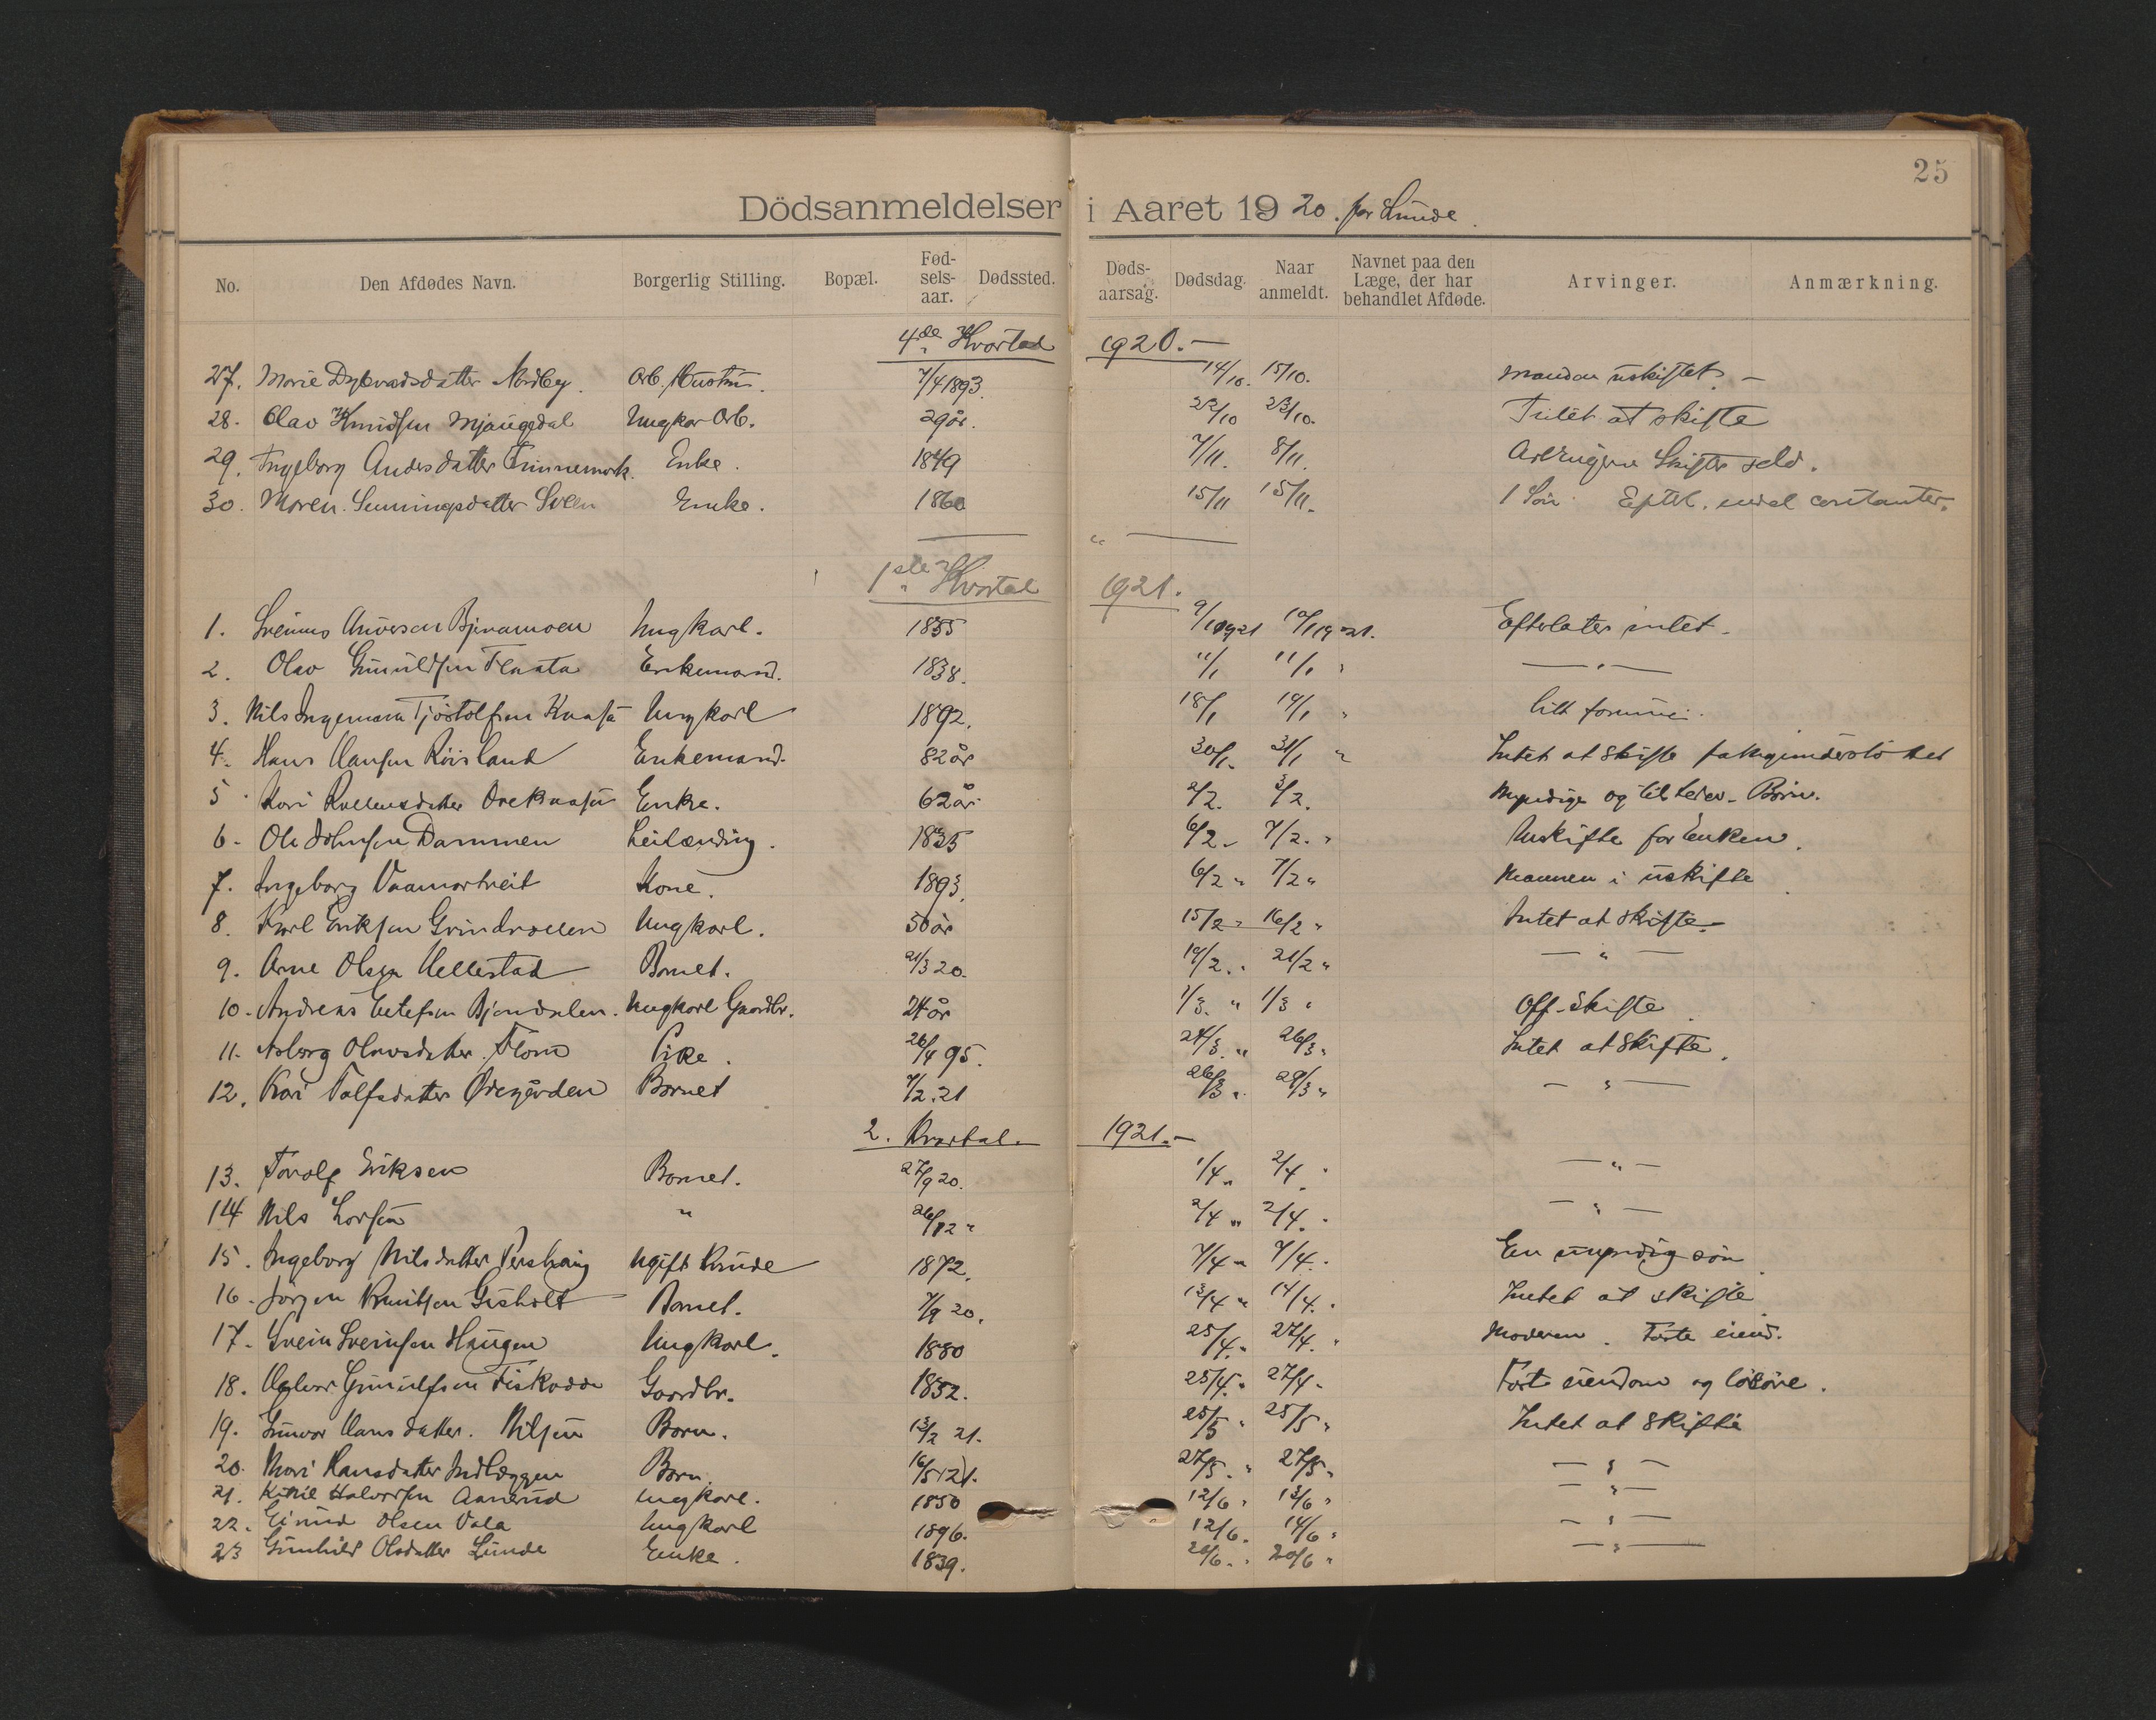 25
Dödsanmeldelser i Aaret 1920. for Lunde.
No. Den Afdødes Navn. Borgerlig Stilling. Bopæl. Fødselsaar. Dødssted. Dødsaarsag. Dødsdag. Naar anmeldt. Navnet paa den Læge, der har behandlet Afdøde. Arvinger. Anmærkning.
4de Kvartal 1920.—
27. Marie Nordby. Arb. Hustru. 7/4 1893. 14/10. 15/10. Manden uskiftet. —
28. Olav Knudsen Mjaugedal Ungkar Arb. 29 år. 22/10 23/10. Intet at skifte
29. Ingeborg Andersdatter Enke. 1849 7/11. 8/11. Arvingene Skifter selv.
30. Maren Enke. 1860 15/11 15/11. 1 Sön
1ste Kvartal 1921.
1. Ungkarl. 1855 9/1 1921 10/1 1921. Efterlater intet.
2. Olav Gunulfsen Flaata Enkemand. 1838. 11/1 11/1 " — " —
3. Nils Ingemann Tjöstolfsen Ungkarl 1892. 18/1 19/1 " litt formue.
4. Hans Hansen Röisland Enkemand. 82 år 30/1. 31/1 " Intet at skifte fattigunderstöttet
5 Kari Enke. 62 år. 2/2. 3/2. Myndige og tilstede Börn.
6. Ole Johnsen Dammen Leilænding. 1835 6/2. 7/2. " Uskifte for Enken.
7. Ingeborg Vaamartveit Kone. 1893. 6/2 " 7/2 " Mannen i uskifte
8. Karl Eriksen Grindrollen Ungkarl. 50 år 15/2 " 16/2 " Intet at skifte.
9. Arne Olsen Hellestad Barnet. 21/3 20. 19/2. " 21/2 " — " —
10. Andreas Bjervdalen. Ungkarl Gaardbr. 74 år 1/3. " 1/3 " Off. skifte
11. Asborg Olavsdatter Flom Pike. 26/4 95. 24/3. " 26/3 " Intet at skifte.
12. Kari Tolfsdatter Ödegården Barnet 7/2. 21 26/3 " 29/3 " — " —
2. Kvartal. 1921.—
13. Torolf Eriksen Barnet. 27/9 20. 1/4 " 2/4 " — " —
14 Nils Larsen " 26/12 " 2/4 " 2/4. " — " —
15. Ingeborg Nilsdatter Pershaug Ugift Kvinde 1872. 7/4 " 7/4. " En umyndig sön
16. Jörgen Knutsen Gisholt Barnet. 7/9 20. 13/4 " 14/4. " Intet at skifte
17. Svein Sveinsen Haugen Ungkarl. 1880 25/4. " 27/4. " Moderen. Faste eiend.
18. Gunulfsen Fiskodde Gaardbr. 1852. 25/4. " 27/4 " Fast eiendom og lösöre.
19. Gunvor Hansdatter Nilsen Barn. 13/2 21. 25/5 " 25/5 " Intet at skifte
20. Mari Hansdatter Indlæggen Barn. 16/5 21. 27/5. " 27/5 " — " —
21. Kittil Halvorsen Aanerud Ungkarl. 1850 12/6 " 13/6 " — " —
22. Eivind Olsen Vala Ungkarl 1896. 12/6. 14/6 " — " —
23 Gunhild Olsdatter Lunde Enke. 1839. 20/6. " 20/6 " — " —